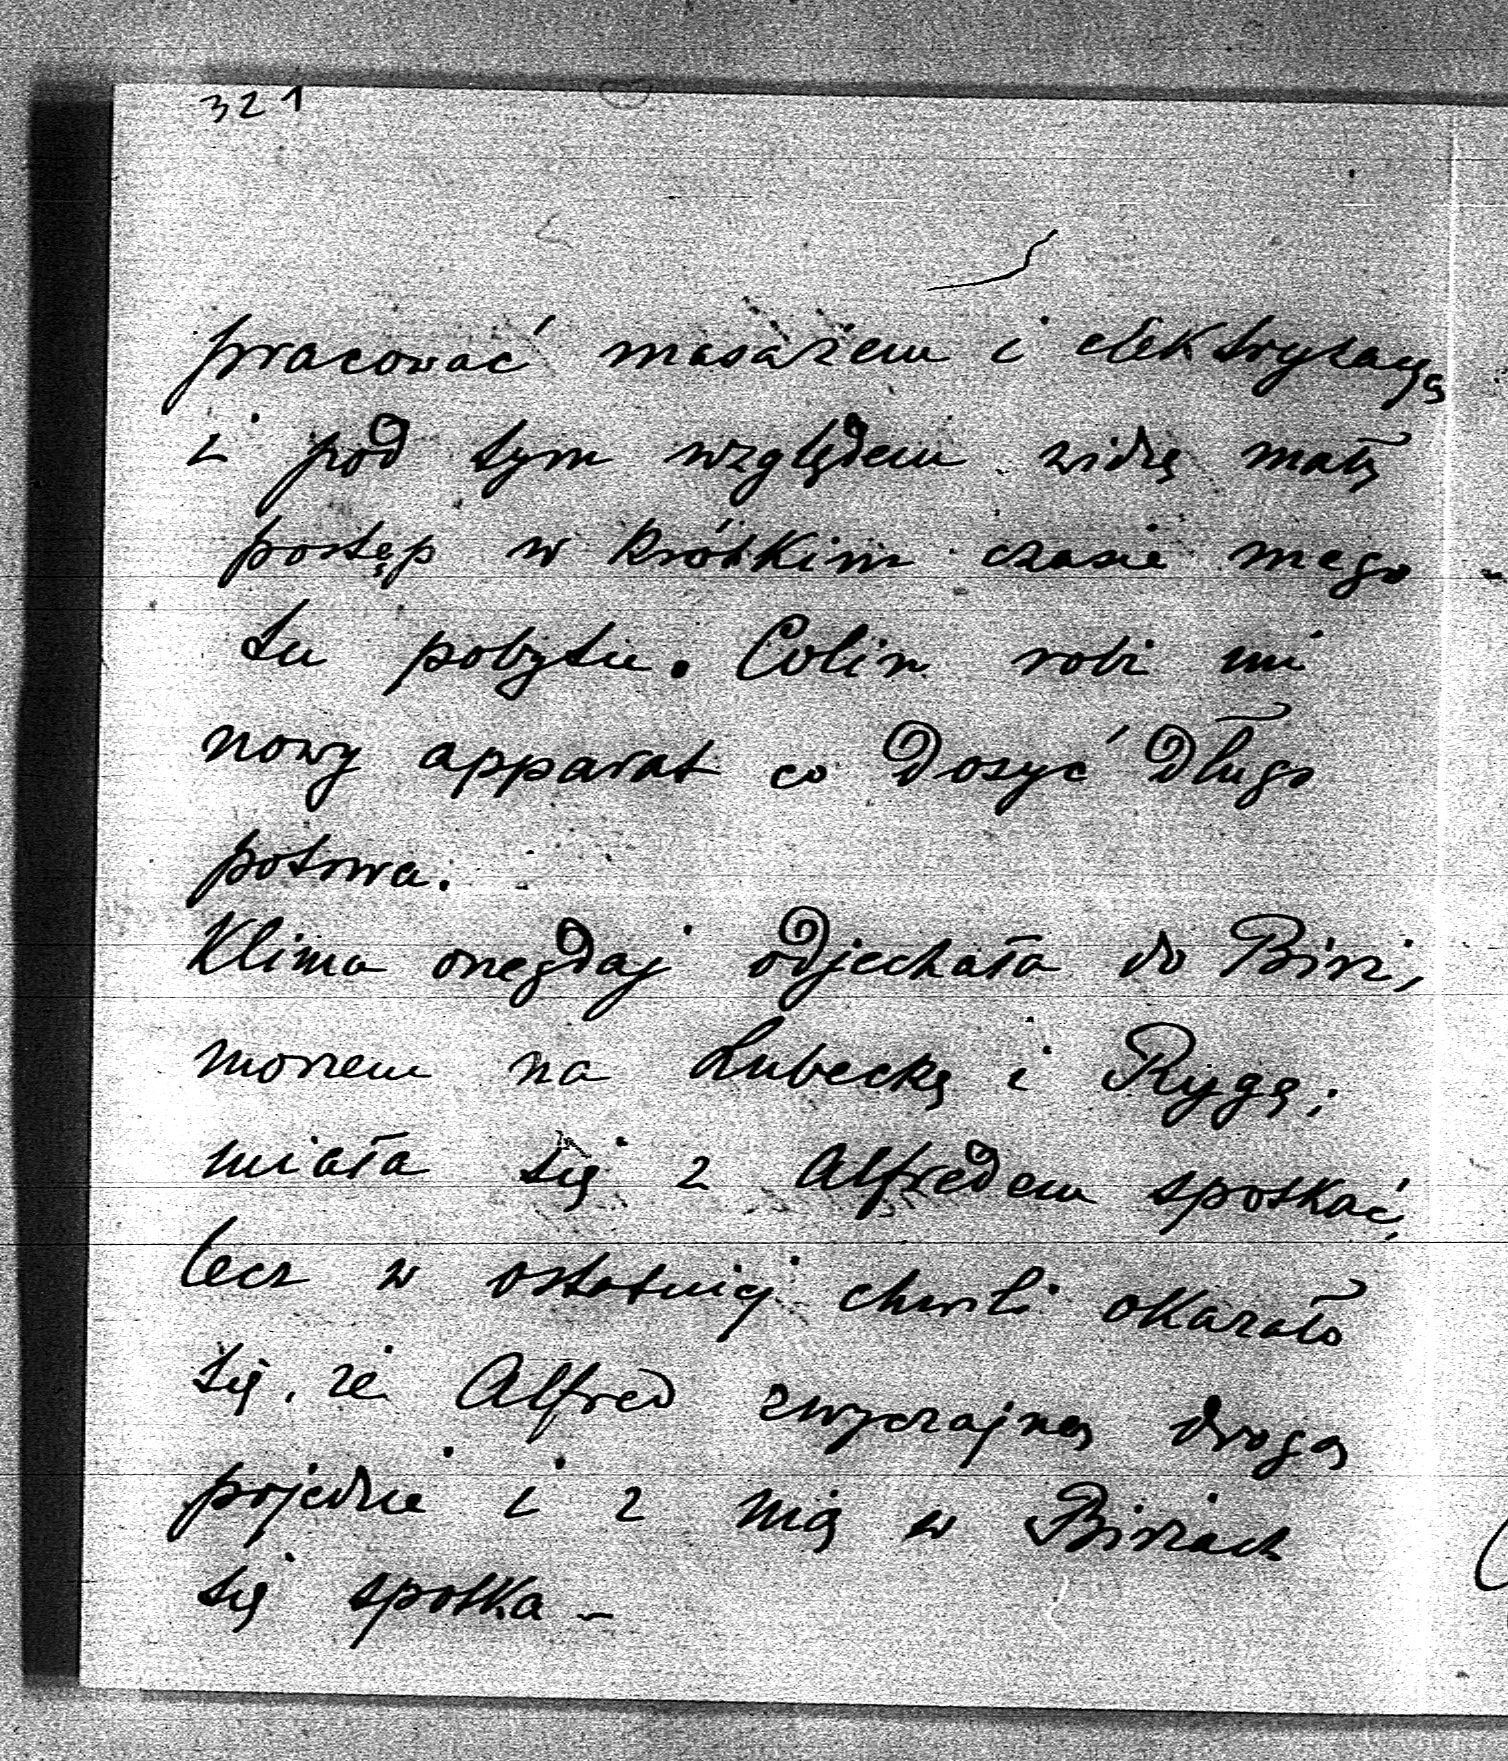 321
pracować masażem i elektryzacyą
i pod tym względem widzę mały
postęp w krótkim czasie mego
tu pobytu. Colin robi mi
nowy apparat co dosyć długo
potrwa.
Klima onegdaj odjechała do Birż,
morzem na Lubeckę i Rygę;
miała się z Alfredem spotkać,
lecz w ostatniej chwili okazało
się, że Alfred zwyczajną drogą
pojedzie i z nią w Birżach
się spotka –